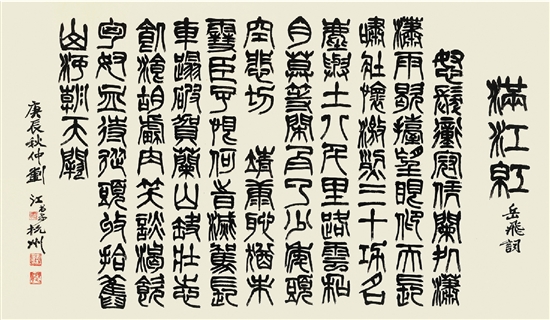 滿江紅
岳飛詞
怒髮衝冠凭闌処瀟
瀟雨歇擡望眼仰天長
嘯壯懷激烈三十功名
塵與土八千里路雲和
月莫等閑白了少年頭
空悲切 靖康恥猶未
雪臣子恨何旹滅駕長
車蹋破賀蘭山缺壯志
飢飡胡虜肉笑談渴飲
匈奴血待從頭收拾舊
山河朝天闕
庚辰秋仲劉江書于杭州